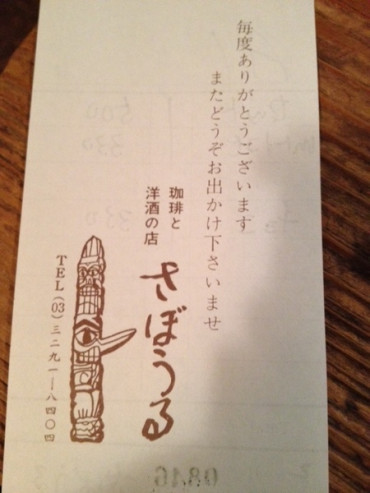 毎度ありがとうございます
またどうぞお出かけ下さいませ
珈琲と
洋酒の店
さぼうる
TEL(03)三二九一―八四〇四